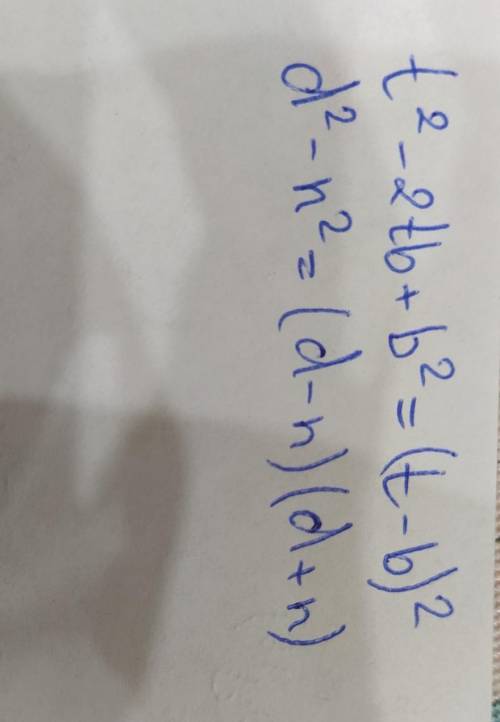 t² - 2tb + b² = (t - b)²
d² - n² = (d - n)(d + n)